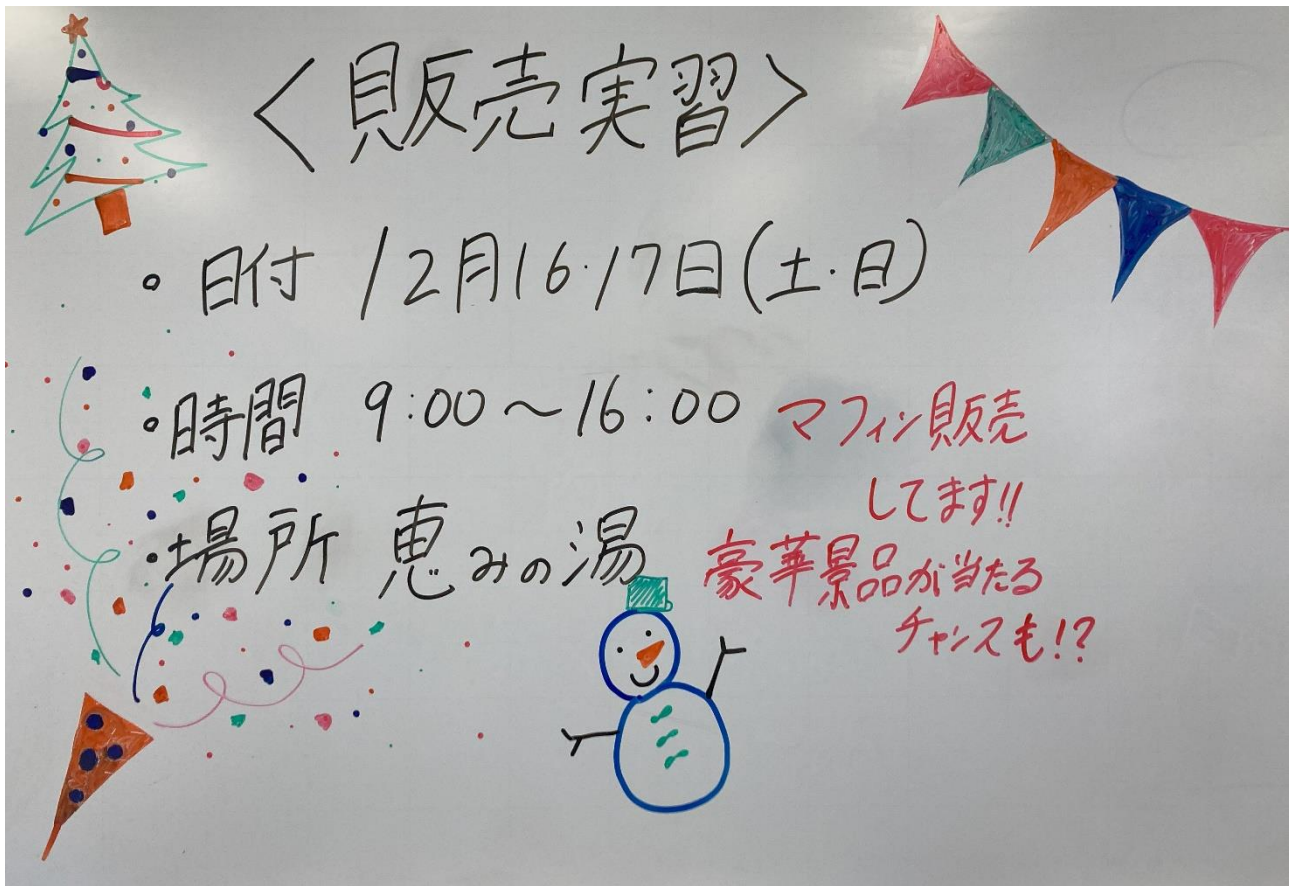 〈販売実習〉
・日付 12月16・17日(土・日)
・時間 9:00〜16:00
・場所 恵みの湯
マフィン販売
してます!!
豪華景品が当たる
チャンスも!?